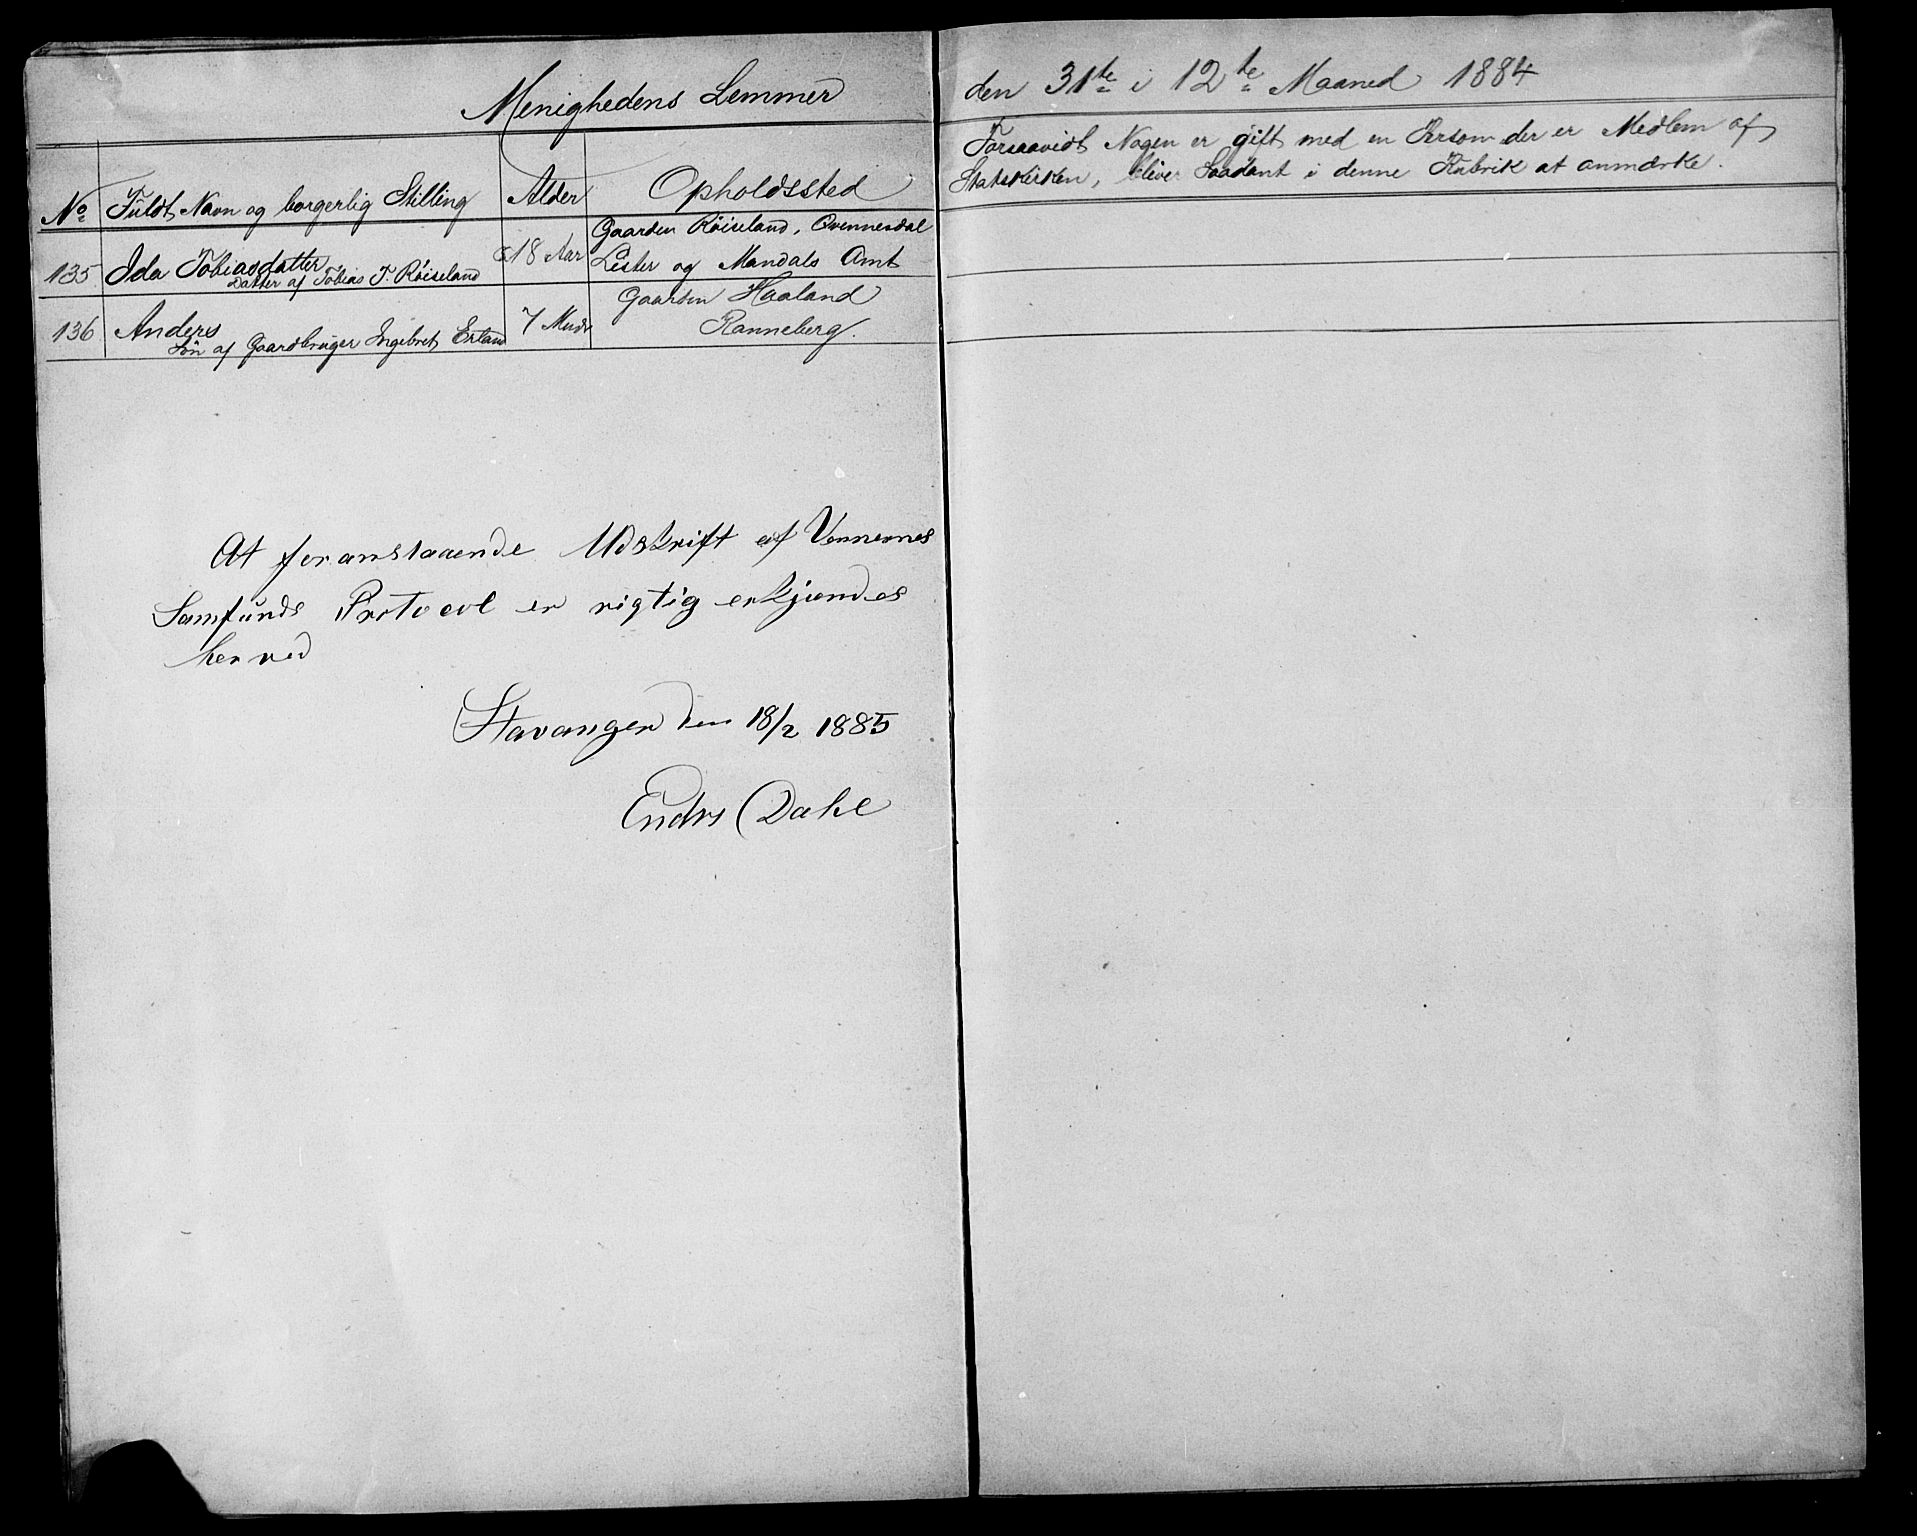 Menighedens Lemmer
No Fuldt Navn og borgerlig Stilling Alder Opholdssted
135 Ida Tobiasdatter 18 Aar Gaarden Röiseland, Qvennesdal
Datter af Tobias T. Röiseland Lister og Mandals Amt
136 Anders 7 Mndr Gaarden Haaland
Sön af Gaardbruger Ingebret Erland Ranneberg.
At foranstaaende Udskrift af Vennernes
Samfunds Protocol er rigtig erkjendes
herved
Stavanger den 18/2 1885
Endre Dahl
den 31te i 12te Maaned 1884
Forsaavidt Nogen er gift med en Person der er Medlem af
Statskirken, bliver Saadant i denne Rubrik at anmærke.